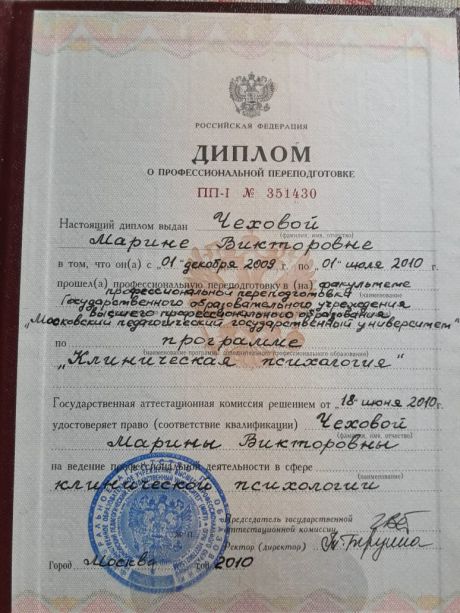 РОССИЙСКАЯ ФЕДЕРАЦИЯ
ДИПЛОМ
О ПРОФЕССИОНАЛЬНОЙ ПЕРЕПОДГОТОВКЕ
ПП-I № 351430
Настоящий диплом выдан Чеховой
(фамилия, имя, отчество)
Марине Викторовне
в том, что он(а) с „01“ декабря 2009 г. по „01“ июля 2010 г.
прошел(а) профессиональную переподготовку в (на) факультете
профессиональной переподготовки
(наименование
Государственного образовательного учреждения
высшего профессионального образования
„Московский педагогический государственный университет“
по программе
(наименование программы дополнительного профессионального образования)
„Клиническая психология“
Государственная аттестационная комиссия решением от „18“ июня 2010г.
удостоверяет право (соответствие квалификации) Чеховой
(фамилия, имя, отчество)
Марины Викторовны
на ведение профессиональной деятельности в сфере
(наименование)
клинической психологии
Председатель государственной
аттестационной комиссии
Ректор (директор)
Город Москва год 2010